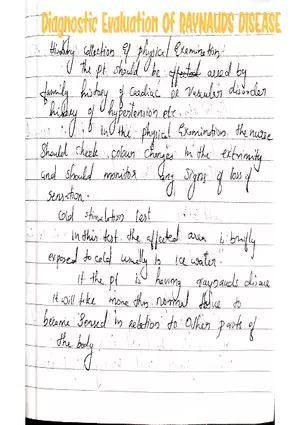 Diagnostic Evaluation OF RAYNAUDS DISEASE
History collection & physical Examination.
the pt should be asced by
family history of cardiac or vascular disorder
history of hypertension etc.
in the physical Examination the nurse
should check colour changes in the extrimity
and should monitor any signs of loss of
sensation.
Cold stimulation test
In this test the affected area is briefly
exposed to cold usually to ice water.
If the pt is having raynauds disease
it will take more than normal to
became sensed in relation to other parts of
the body.